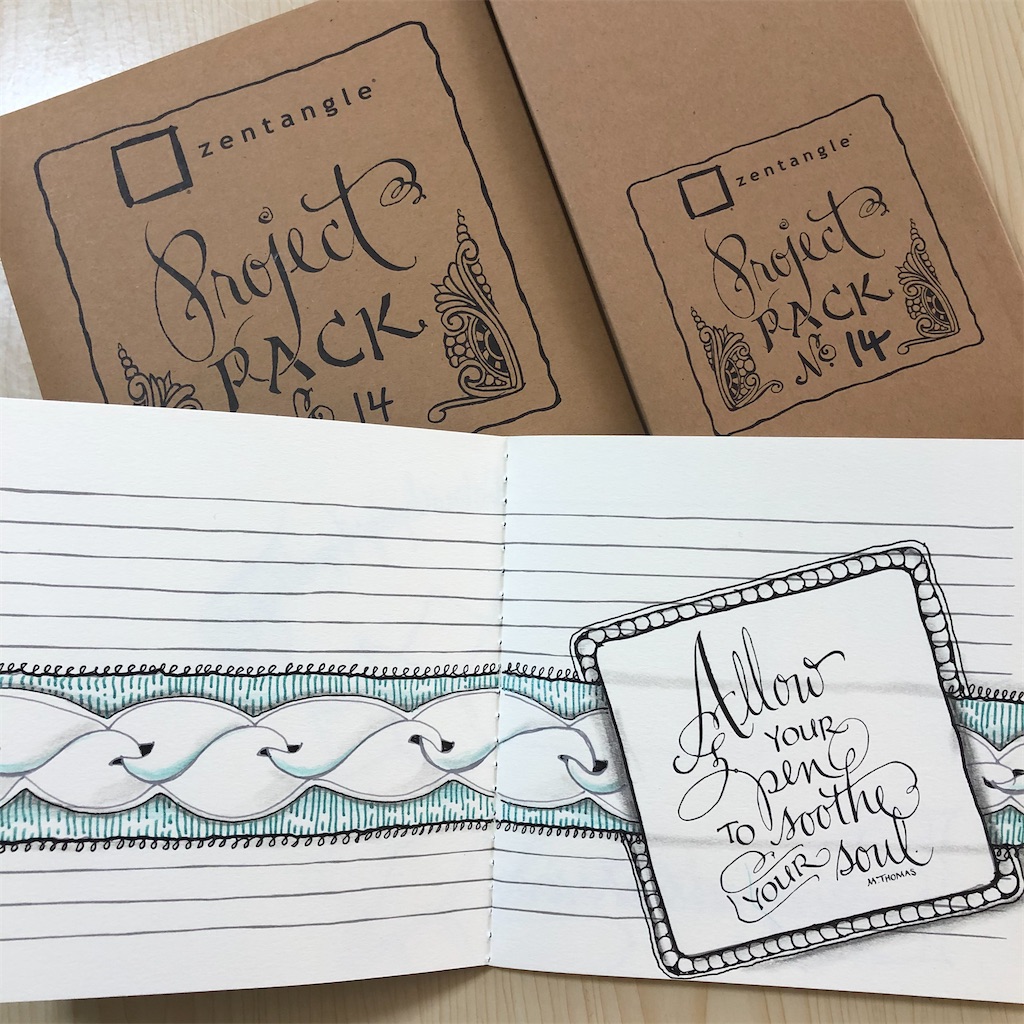 zentangle
Project
PACK
No. 14
zentangle
Project
PACK
No. 14
Allow
YOUR
pen
TO soothe
YOUR soul.
M. THOMAS